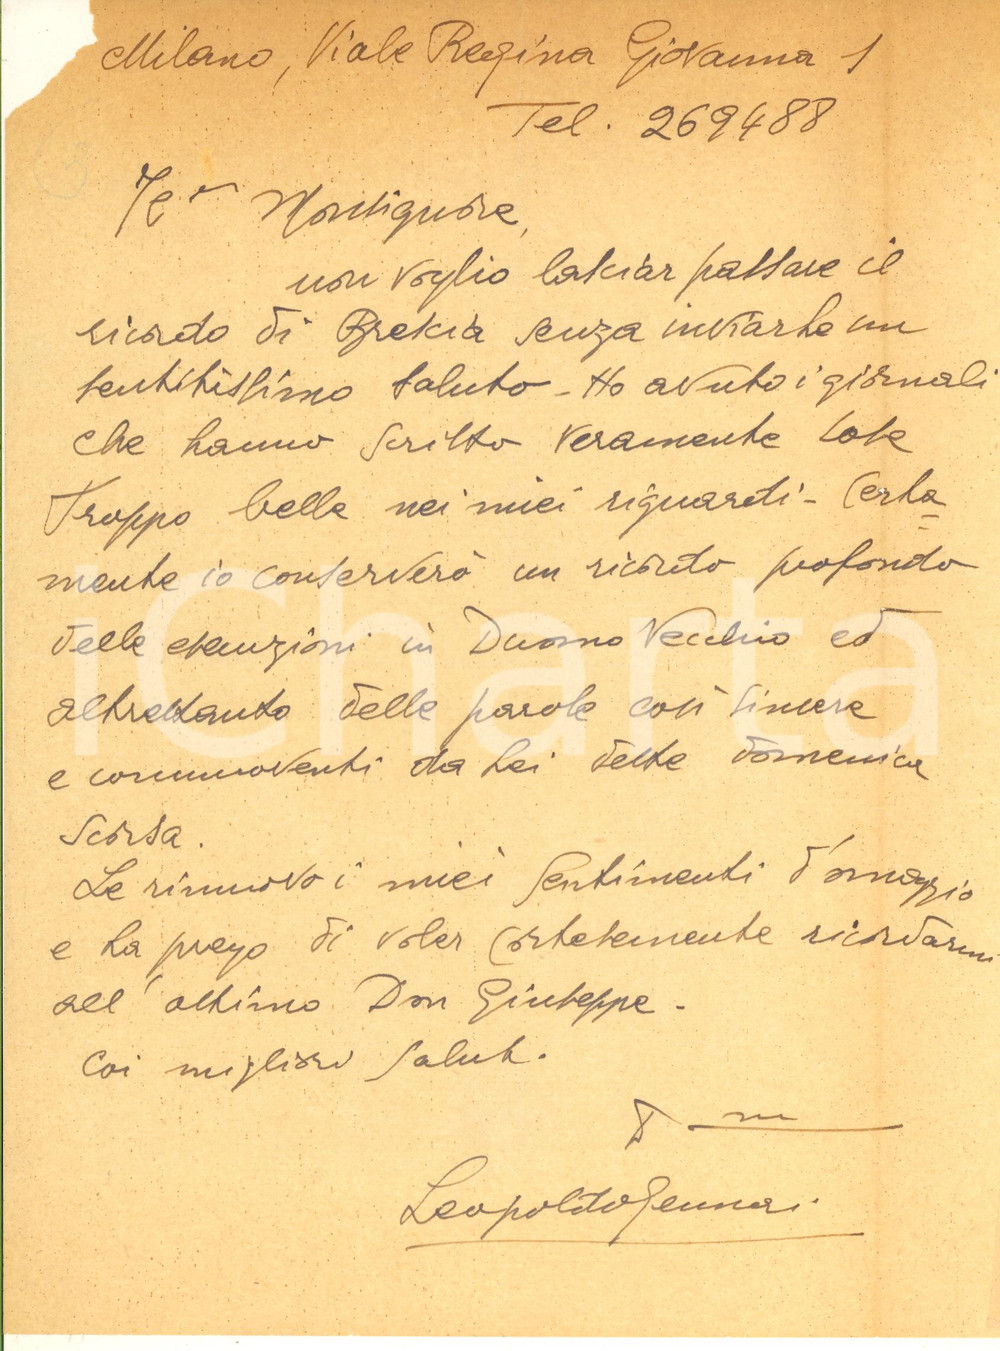 Milano, Viale Regina Giovanna 1
Tel. 269488
Monsignore,
non voglio lasciar passare il
ricordo di Brescia senza inviarLe un
sentitissimo saluto - Ho avuto i giornali
che hanno scritto veramente cose
troppo belle nei miei riguardi - Certa=
mente io conserverò un ricordo profondo
delle esecuzioni in Duomo Vecchio ed
altrettanto delle parole così sincere
e commoventi da Lei dette domenica
scorsa.
Le rinnovo i miei sentimenti d'omaggio
e La prego di voler cortesemente ricordarmi
all'ottimo Don Giuseppe -
Coi migliori saluti.
Leopoldo Gennai
iCharta